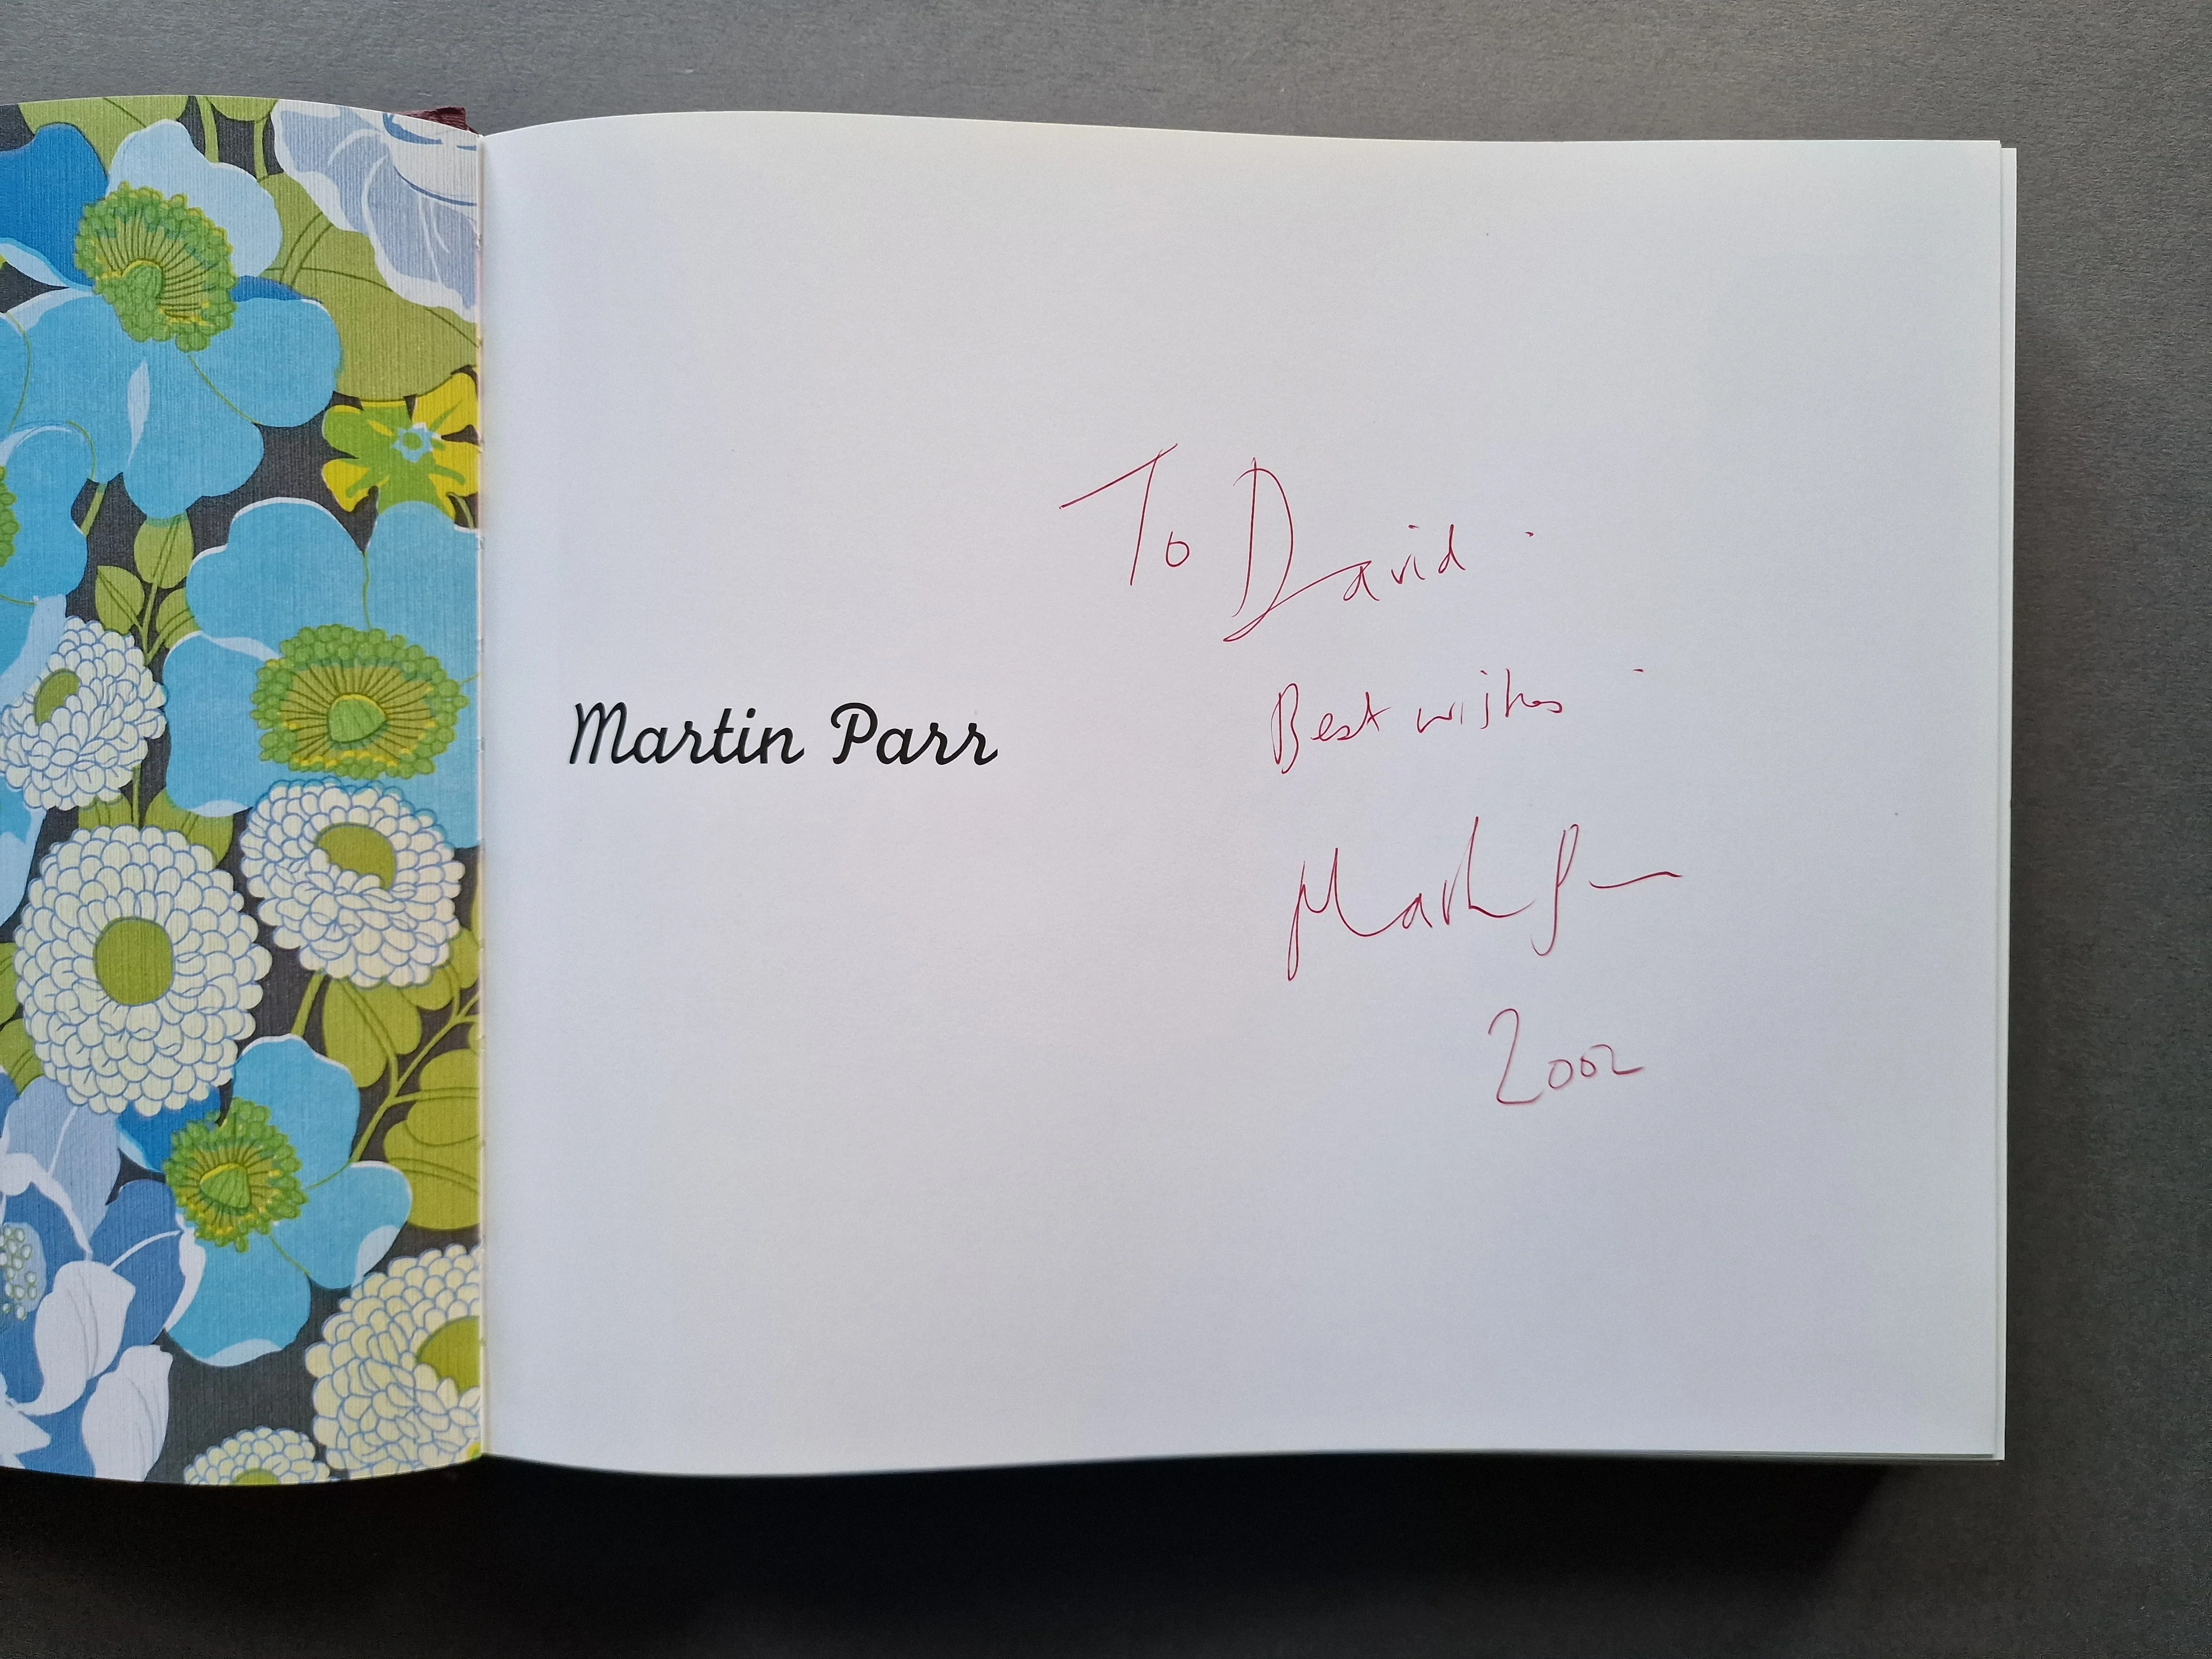 Martin Parr
To David.
Best wishes
Martin Parr
2002